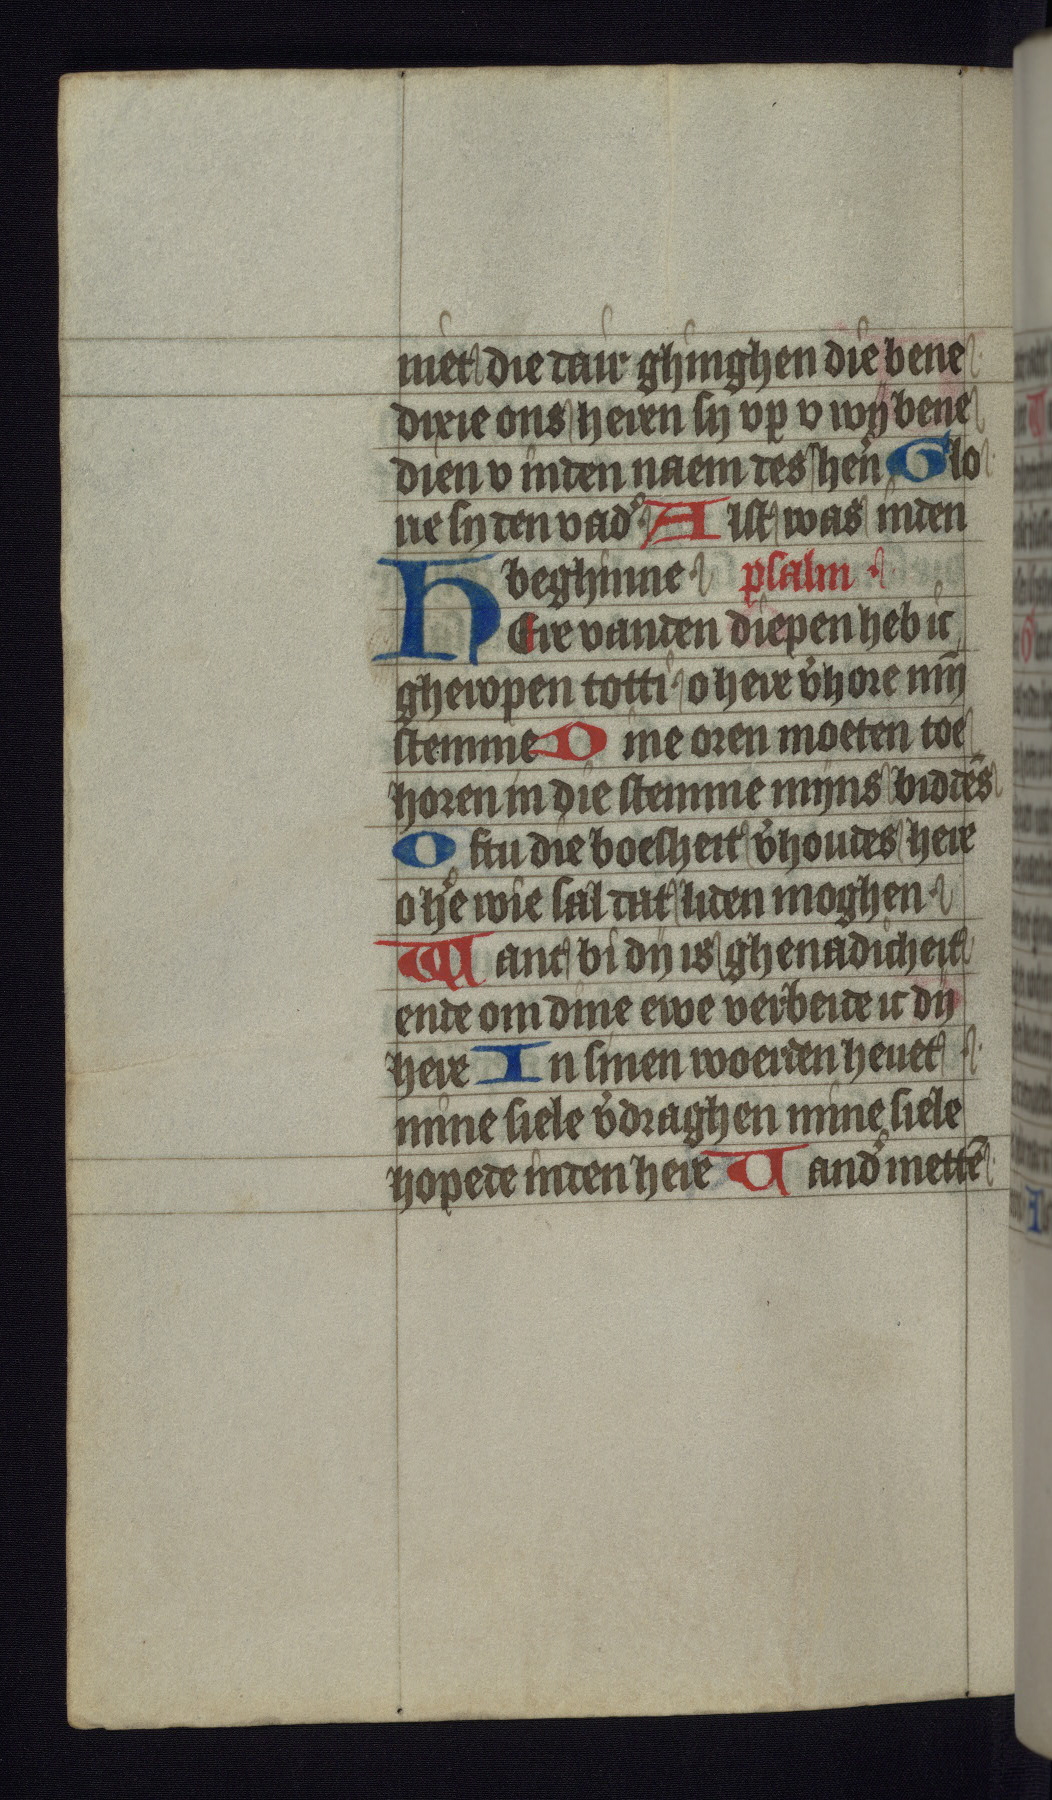 niet die dair ghinghen die bene
dixie ons heren sy vp v wy bene
dien v inden naem des hen̄ Glo
rie sy den vad' Alst was inden
beghinne psalm
HEre vanden diepen heb ic
gheropen totti o here v'hore mÿ
stemme Dine oren moeten toe
horen in die stemme mijns biddēs
Ofstu die boesheit v'houdes here
o he' wie sal dat liden moghen
Want bi dy is ghenadicheit
ende om dine ewe verbeide ic dy
here In sinen woerden heuet
mine siele v'draghen mine siele
hopede inden here Vand' mettē